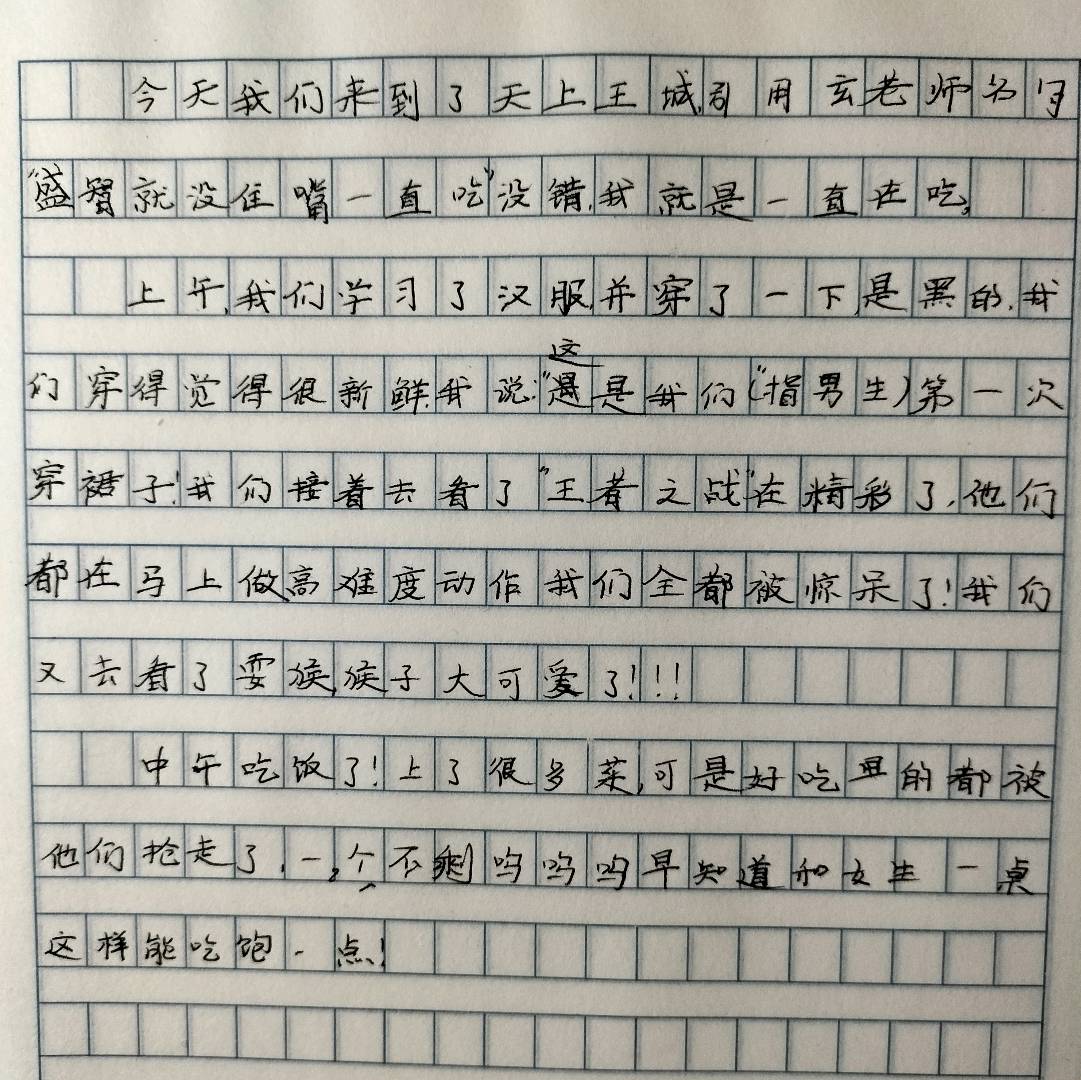 今天我们来到了天上王城,引用玄老师的
"盛智就没住嘴一直吃"没错,我就是一直在吃。
上午,我们学习了汉服,并穿了一下,是黑的,我
这
们穿得觉得很新鲜,我说:"是我们("指男生)第一次
穿裙子!我们接着去看了"王者之战"在精彩了,他们
都在马上做高难度动作我们全都被惊呆了!我们
又去看了耍猴,猴子大可爱了!!!
中午吃饭了!上了很多菜,可是好吃的都被
他们抢走了,一个不剩呜呜呜早知道和女生一桌
这样能吃饱一点!